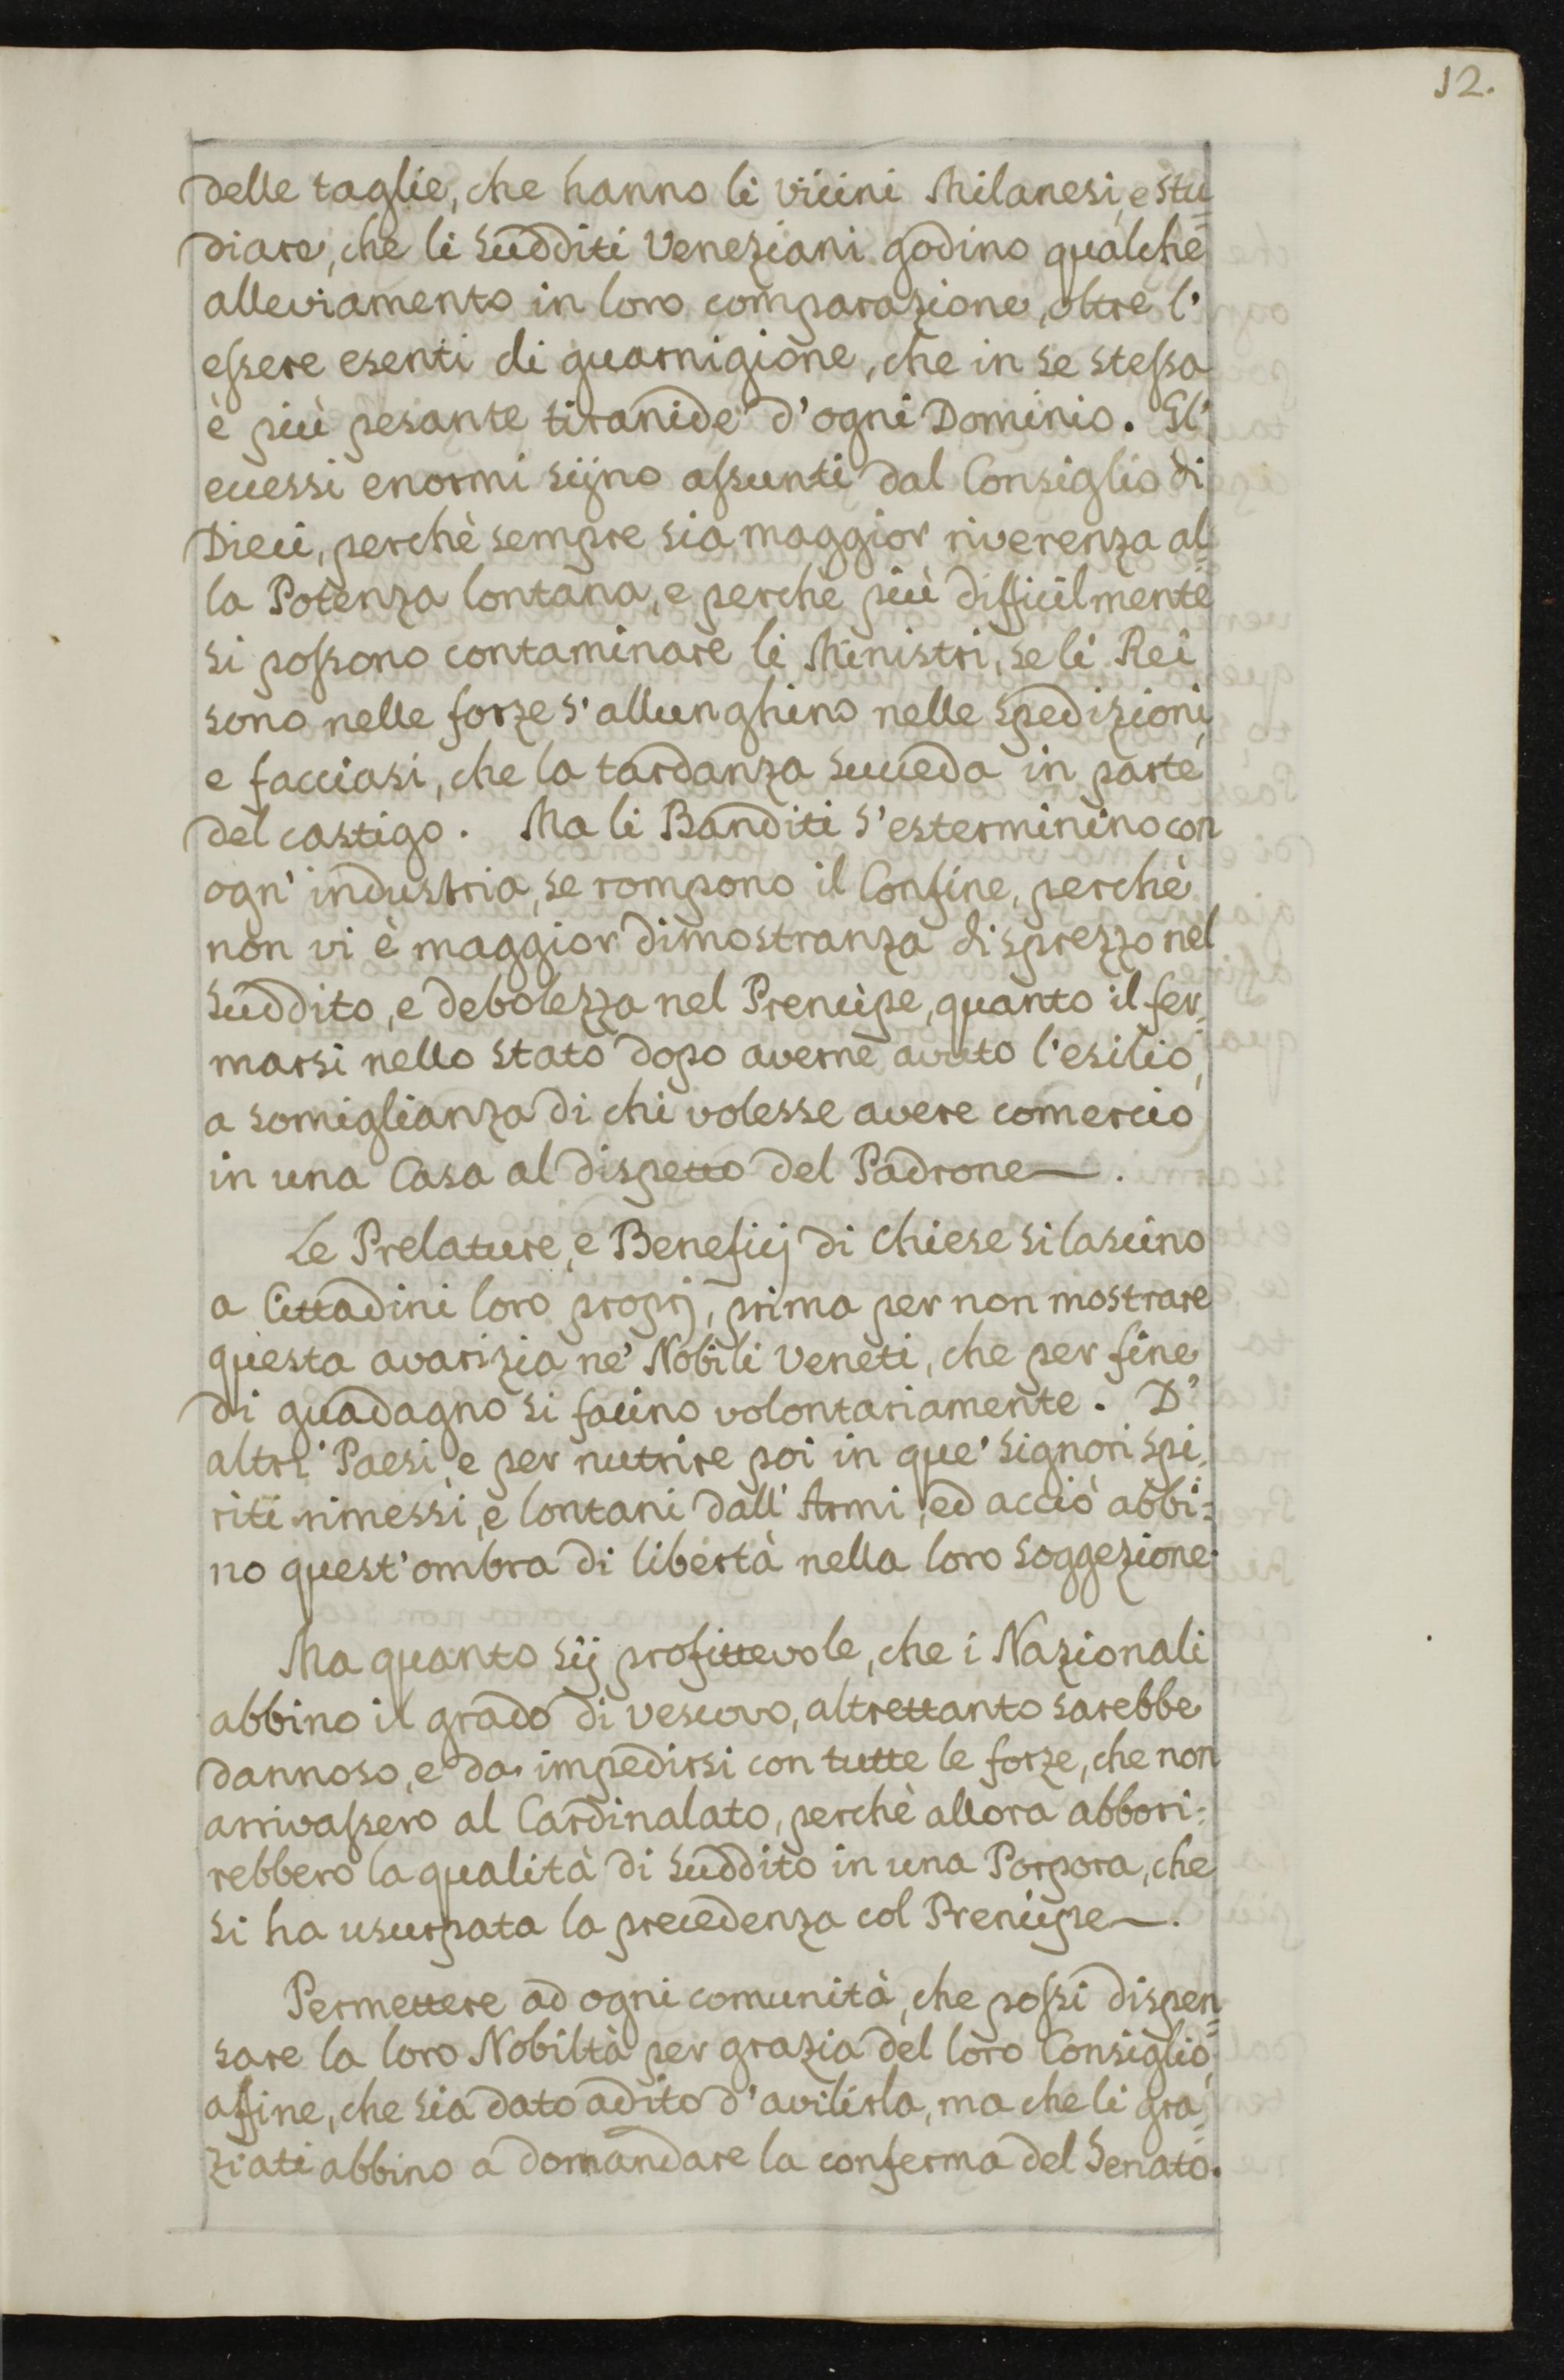 12.
delle taglie, che hanno li vicini Milanesi, e stu=
diare, che li sudditi Veneziani godino qualche
alleviamento in loro comparazione, oltre l'
eſsere esenti di guarnigione, che in se steſsa
è più pesante tiranide d'ogni Dominio. Gl'
eccessi enormi sijno aſsunti dal Consiglio di
Dieci, perchè sempre sia maggior riverenza al=
la Potenza lontana, e perchè più difficilmente
si poſsono contaminare li Ministri, se li Rei
sono nelle forze s'allunghino nelle spedizioni,
e facciasi, che la tardanza succeda in parte
del castigo. Ma li Banditi s'esterminino con
ogn' industria, se rompono il Confine, perchè
non vi è maggior dimostranza di sprezzo nel
suddito, e debolezza nel Prencipe, quanto il fer=
marsi nello stato dopo averne avuto l'esilio,
a somiglianza di chi volesse avere comercio
in una Casa al dispetto del Padrone.
Le Prelature, e Beneficj di Chiese si lascino
a Cittadini loro proprj, prima per non mostrare
questa avarizia ne' Nobili Veneti, che per fine
di guadagno si faccino volontariamente. D'
altri Paesi, e per nutrire poi in que' signori spi=
riti rimessi, e lontani dall' Armi, ed acciò abbi=
no quest'ombra di libertà nella loro soggezione.
Ma quanto sij profittevole, che i Nazionali
abbino il grado di vescovo, altrettanto sarebbe
dannoso, e da impedirsi con tutte le forze, che non
arrivaſsero al Cardinalato, perchè allora abbori=
rebbero la qualità di suddito in una Porpora, che
si ha usurpata la precedenza col Prencipe.
Permettere ad ogni comunità, che poſsi dispen=
sare la loro Nobiltà per grazia del loro Consiglio,
affine, che sia dato adito d'avilirla, ma che li gra=
ziati abbino a domandare la conferma del Senato.